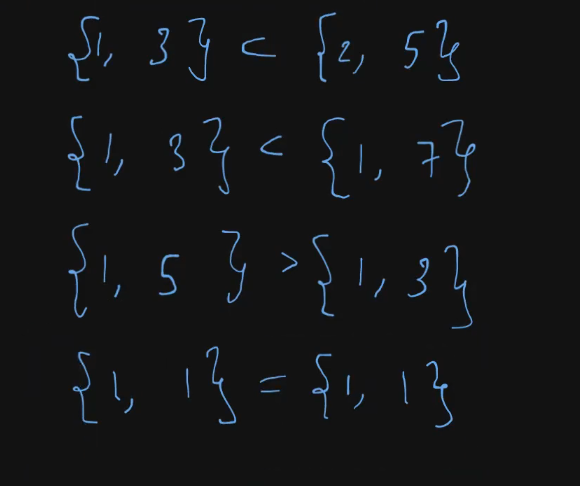 {1, 3} < {2, 5}
{1, 3} < {1, 7}
{1, 5} > {1, 3}
{1, 1} = {1, 1}